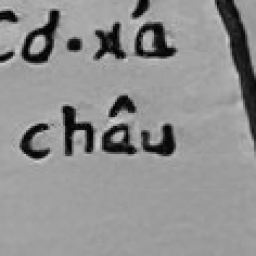 cd.xá
châu